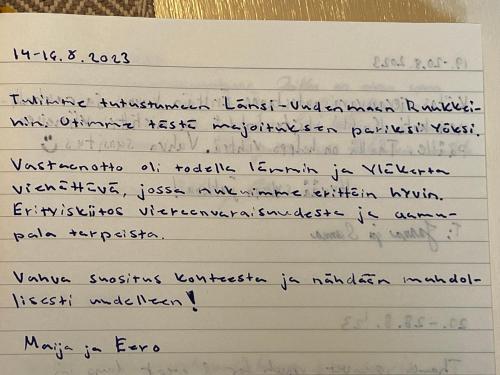 14-16.8.2023
Tulimme tutustumaan Länsi-Uudenmaan Ruukkei-
hin. Otimme tästä majoituksen pariksi yöksi.
Vastaanotto oli todella lämmin ja Yläkerta
viehättävä, jossa nukuimme erittäin hyvin.
Erityiskiitos vieraanvaraisuudesta ja aamu-
pala tarpeista.
Vahva suositus kohteesta ja nähdään mahdol-
lisesti uudelleen!
Maija ja Eero